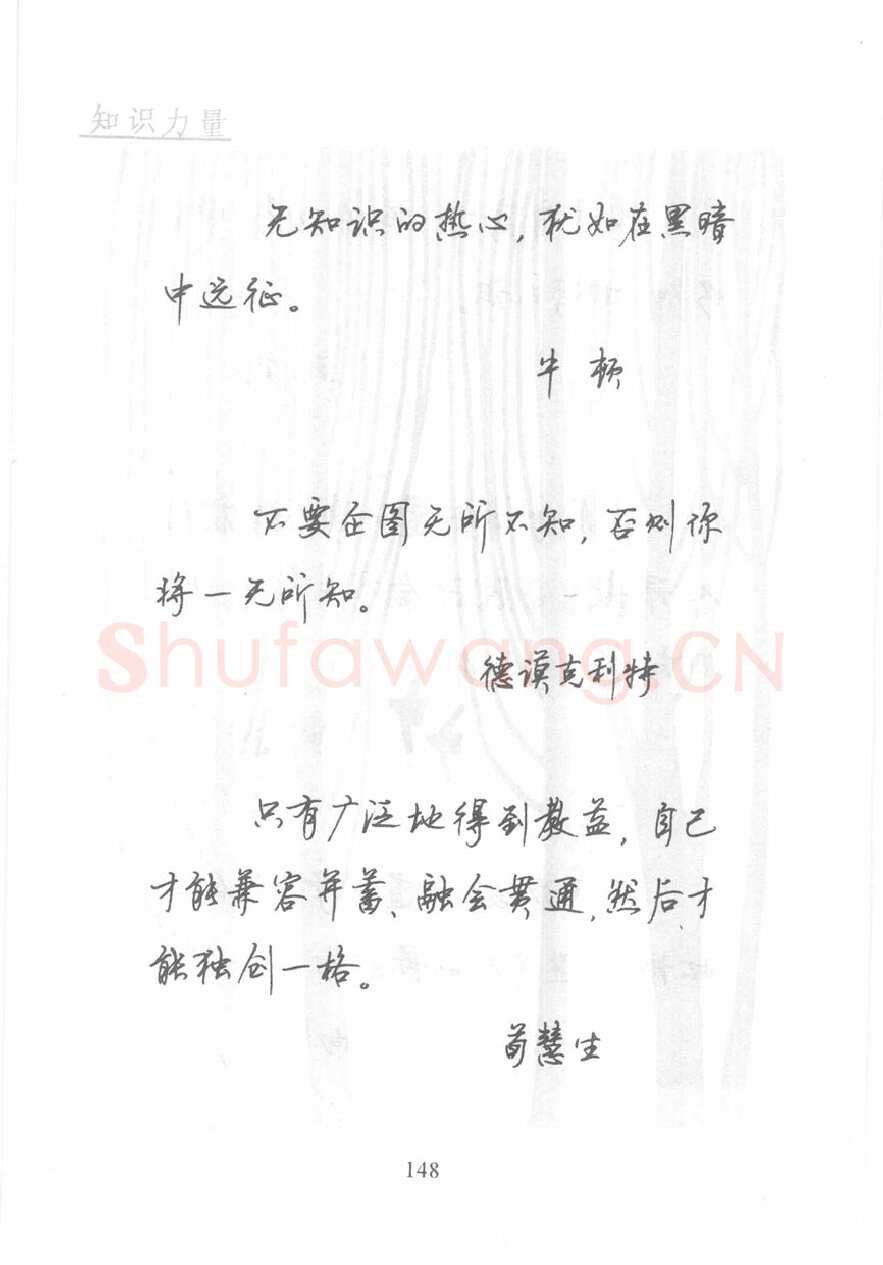 知识力量
无知识的热心，犹如在黑暗
中远征。
牛顿
不要企图无所不知，否则你
将一无所知。
德谟克利特
Shufawang.CN
只有广泛地得到教益，自己
才能兼容并蓄、融会贯通，然后才
能独创一格。
荀慧生
148